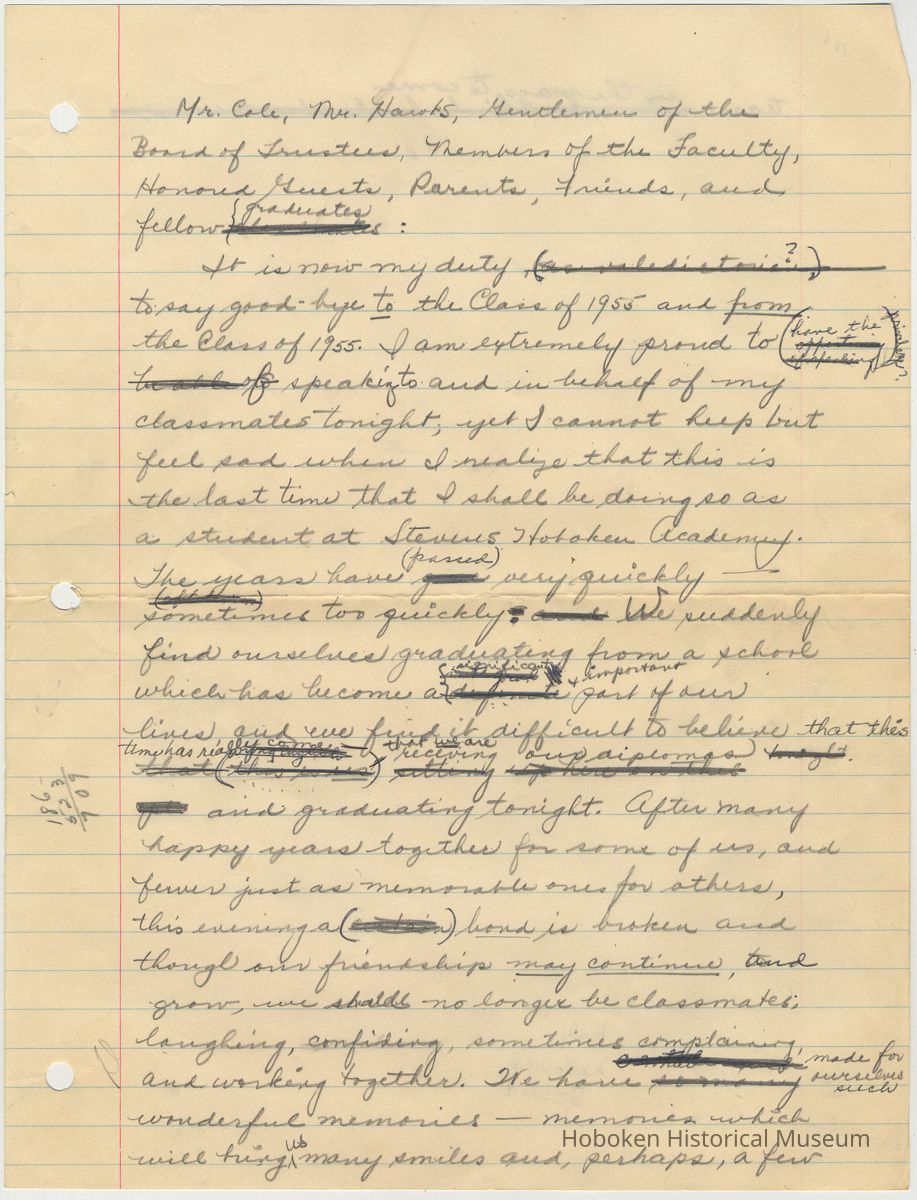 Mr. Cole, Mr. Hawks, Gentlemen of the
Board of Trustees, Members of the Faculty,
Honored Guests, Parents, Friends, and
graduates
fellow classmates :
It is now my duty (as valedictorian?)
to say good-bye to the Class of 1955 and from
the Class of 1955. I am extremely proud to (have the
opportunity
of speaking privilege?)
be able of speaking to and in behalf of my
classmates tonight; yet I cannot keep but
feel sad when I realize that this is
the last time that I shall be doing so as
a student at Stevens Hoboken Academy.
(passed)
The years have very quickly —
sometimes too quickly; and We suddenly
find ourselves graduating from a school
significant & important
which has become a definite part of our
lives and we find it difficult to believe that this
time has really come that we are receiving our diplomas tonight.
that (this is us) sitting up here on this
and graduating tonight. After many
happy years together for some of us, and
fewer just as memorable ones for others,
this evening a (certain) bond is broken and
though our friendship may continue, and
grow, we shall no longer be classmates;
laughing, confiding, sometimes complaining,
made for
and working together. We have so many ourselves
such
wonderful memories — memories which
us
will bring many smiles and, perhaps, a few
186
909
Hoboken Historical Museum